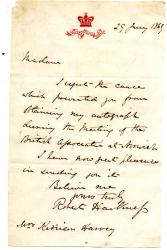 29 July 1869
Madame
I regret the cause
which prevented you from
obtaining my autograph
during the Meeting of the
British Association at Norwich
I have most great pleasure
in sending you it
Believe me
yours truly
Robert Harkness
Mrs Harvey